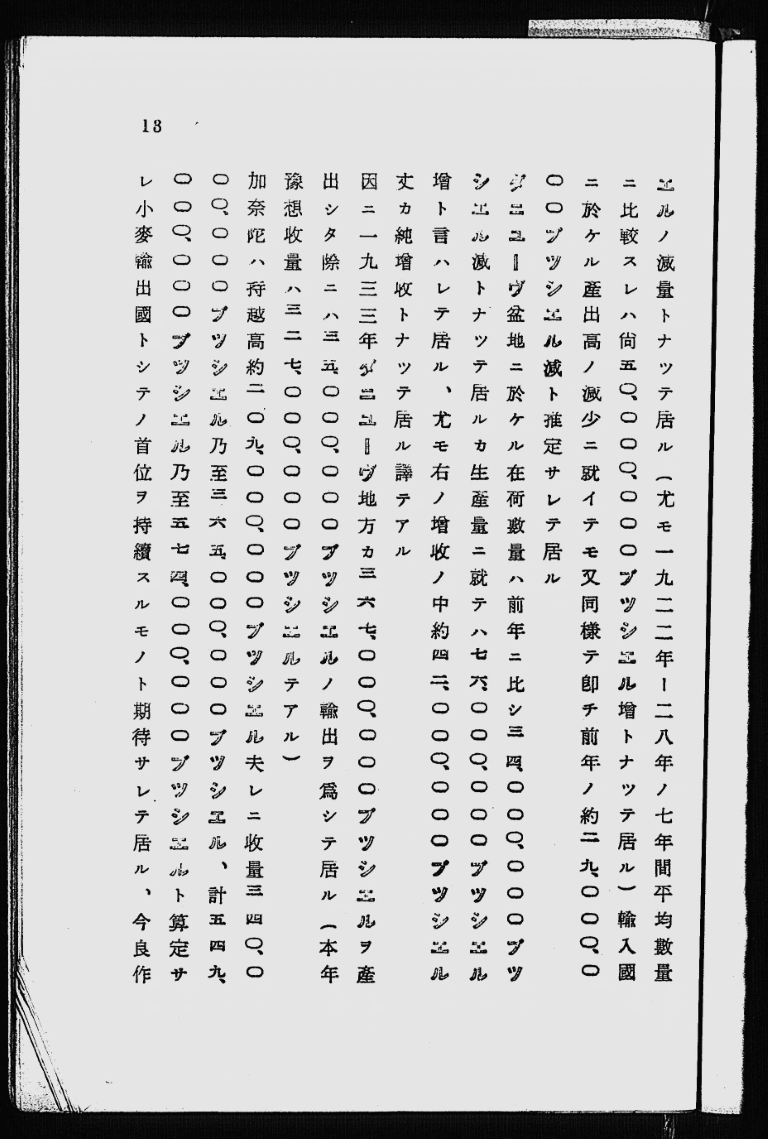 13
エルノ減量トナツテ居ル(尤モ一九二二年ー二八年ノ七年間平均數量
ニ比較スレハ尙五〇、〇〇〇、〇〇〇ブツシエル增トナツテ居ル)輸入國
ニ於ケル產出高ノ減少ニ就イテモ又同樣テ卽チ前年ノ約二九、〇〇〇、〇
〇〇ブツシエル減ト推定サレテ居ル
ダニユーヴ盆地ニ於ケル在荷數量ハ前年ニ比シ三四、〇〇〇、〇〇〇ブツ
シエル減トナツテ居ルカ生產量ニ就テハ七六、〇〇〇、〇〇〇ブツシエル
增ト言ハレテ居ル、尤モ右ノ增收ノ中約四二、〇〇〇、〇〇〇ブツシエル
丈カ純增收トナツテ居ル譯テアル
因ニ一九三三年ダニユーヴ地方カ三六七、〇〇〇、〇〇〇ブツシエルヲ產
出シタ際ニハ三五、〇〇〇、〇〇〇ブツシエルノ輸出ヲ爲シテ居ル(本年
豫想收量ハ三二七、〇〇〇、〇〇〇ブツシエルテアル)
加奈陀ハ持越高約二〇九、〇〇〇、〇〇〇ブツシエル夫レニ收量三四〇、〇
〇〇、〇〇〇ブツシエル乃至三六五、〇〇〇、〇〇〇ブツシエル、計五四九、
〇〇〇、〇〇〇ブツシエル乃至五七四、〇〇〇、〇〇〇ブツシエルト算定サ
レ小麥輸出國トシテノ首位ヲ持續スルモノト期待サレテ居ル、今良作